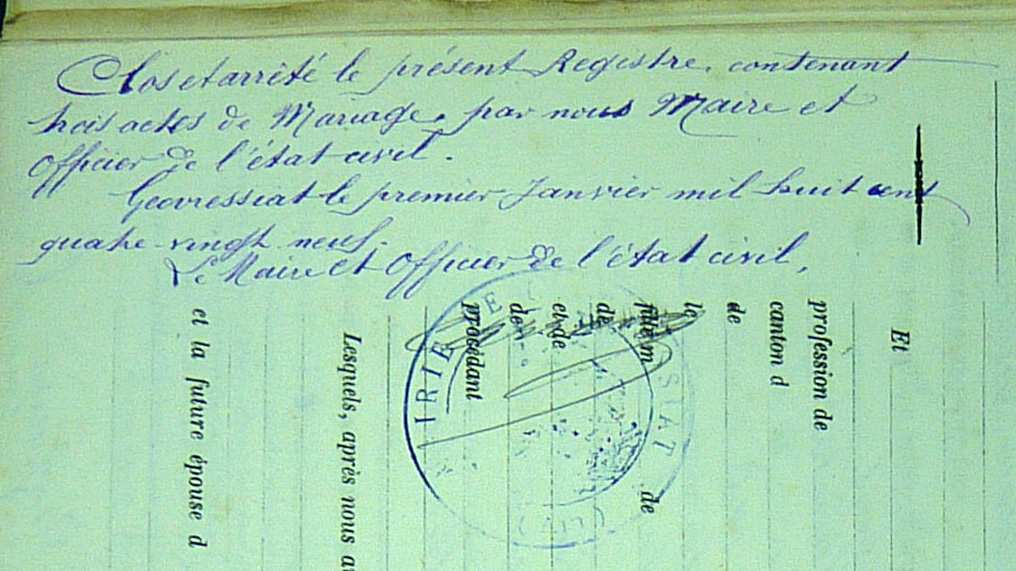 Clos et arrêté le présent Registre, contenant
trois actes de Mariage, par nous Maire et
officier de l'état civil.
Geovressiat le premier Janvier mil huit cent
quatre-vingt neuf.
Le Maire et Officier de l'état civil,
Et
profession de
canton d
de
le
de
de
et de
de
procédant
Lesquels, après nous av
et la future épouse d
IRIE
SIAT
(Ain)